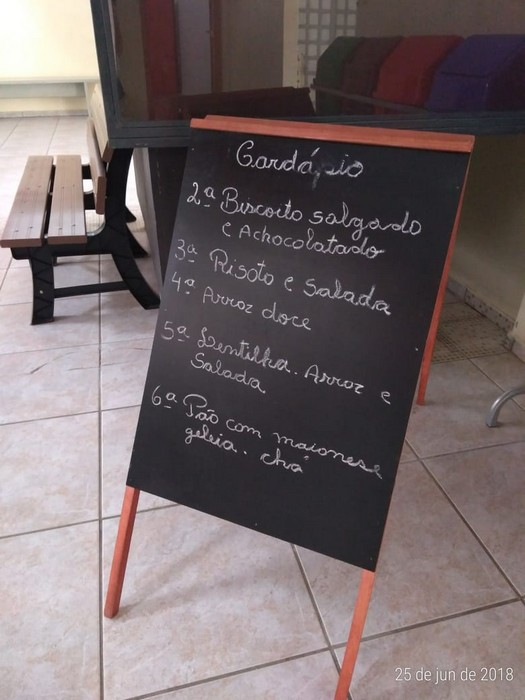 Cardápio
2ª Biscoito salgado
e Achocolatado
3ª Risoto e Salada
4ª Arroz doce
5ª Lentilha. Arroz e
Salada
6ª Pão com maionese
geleia. chá
25 de jun de 2018